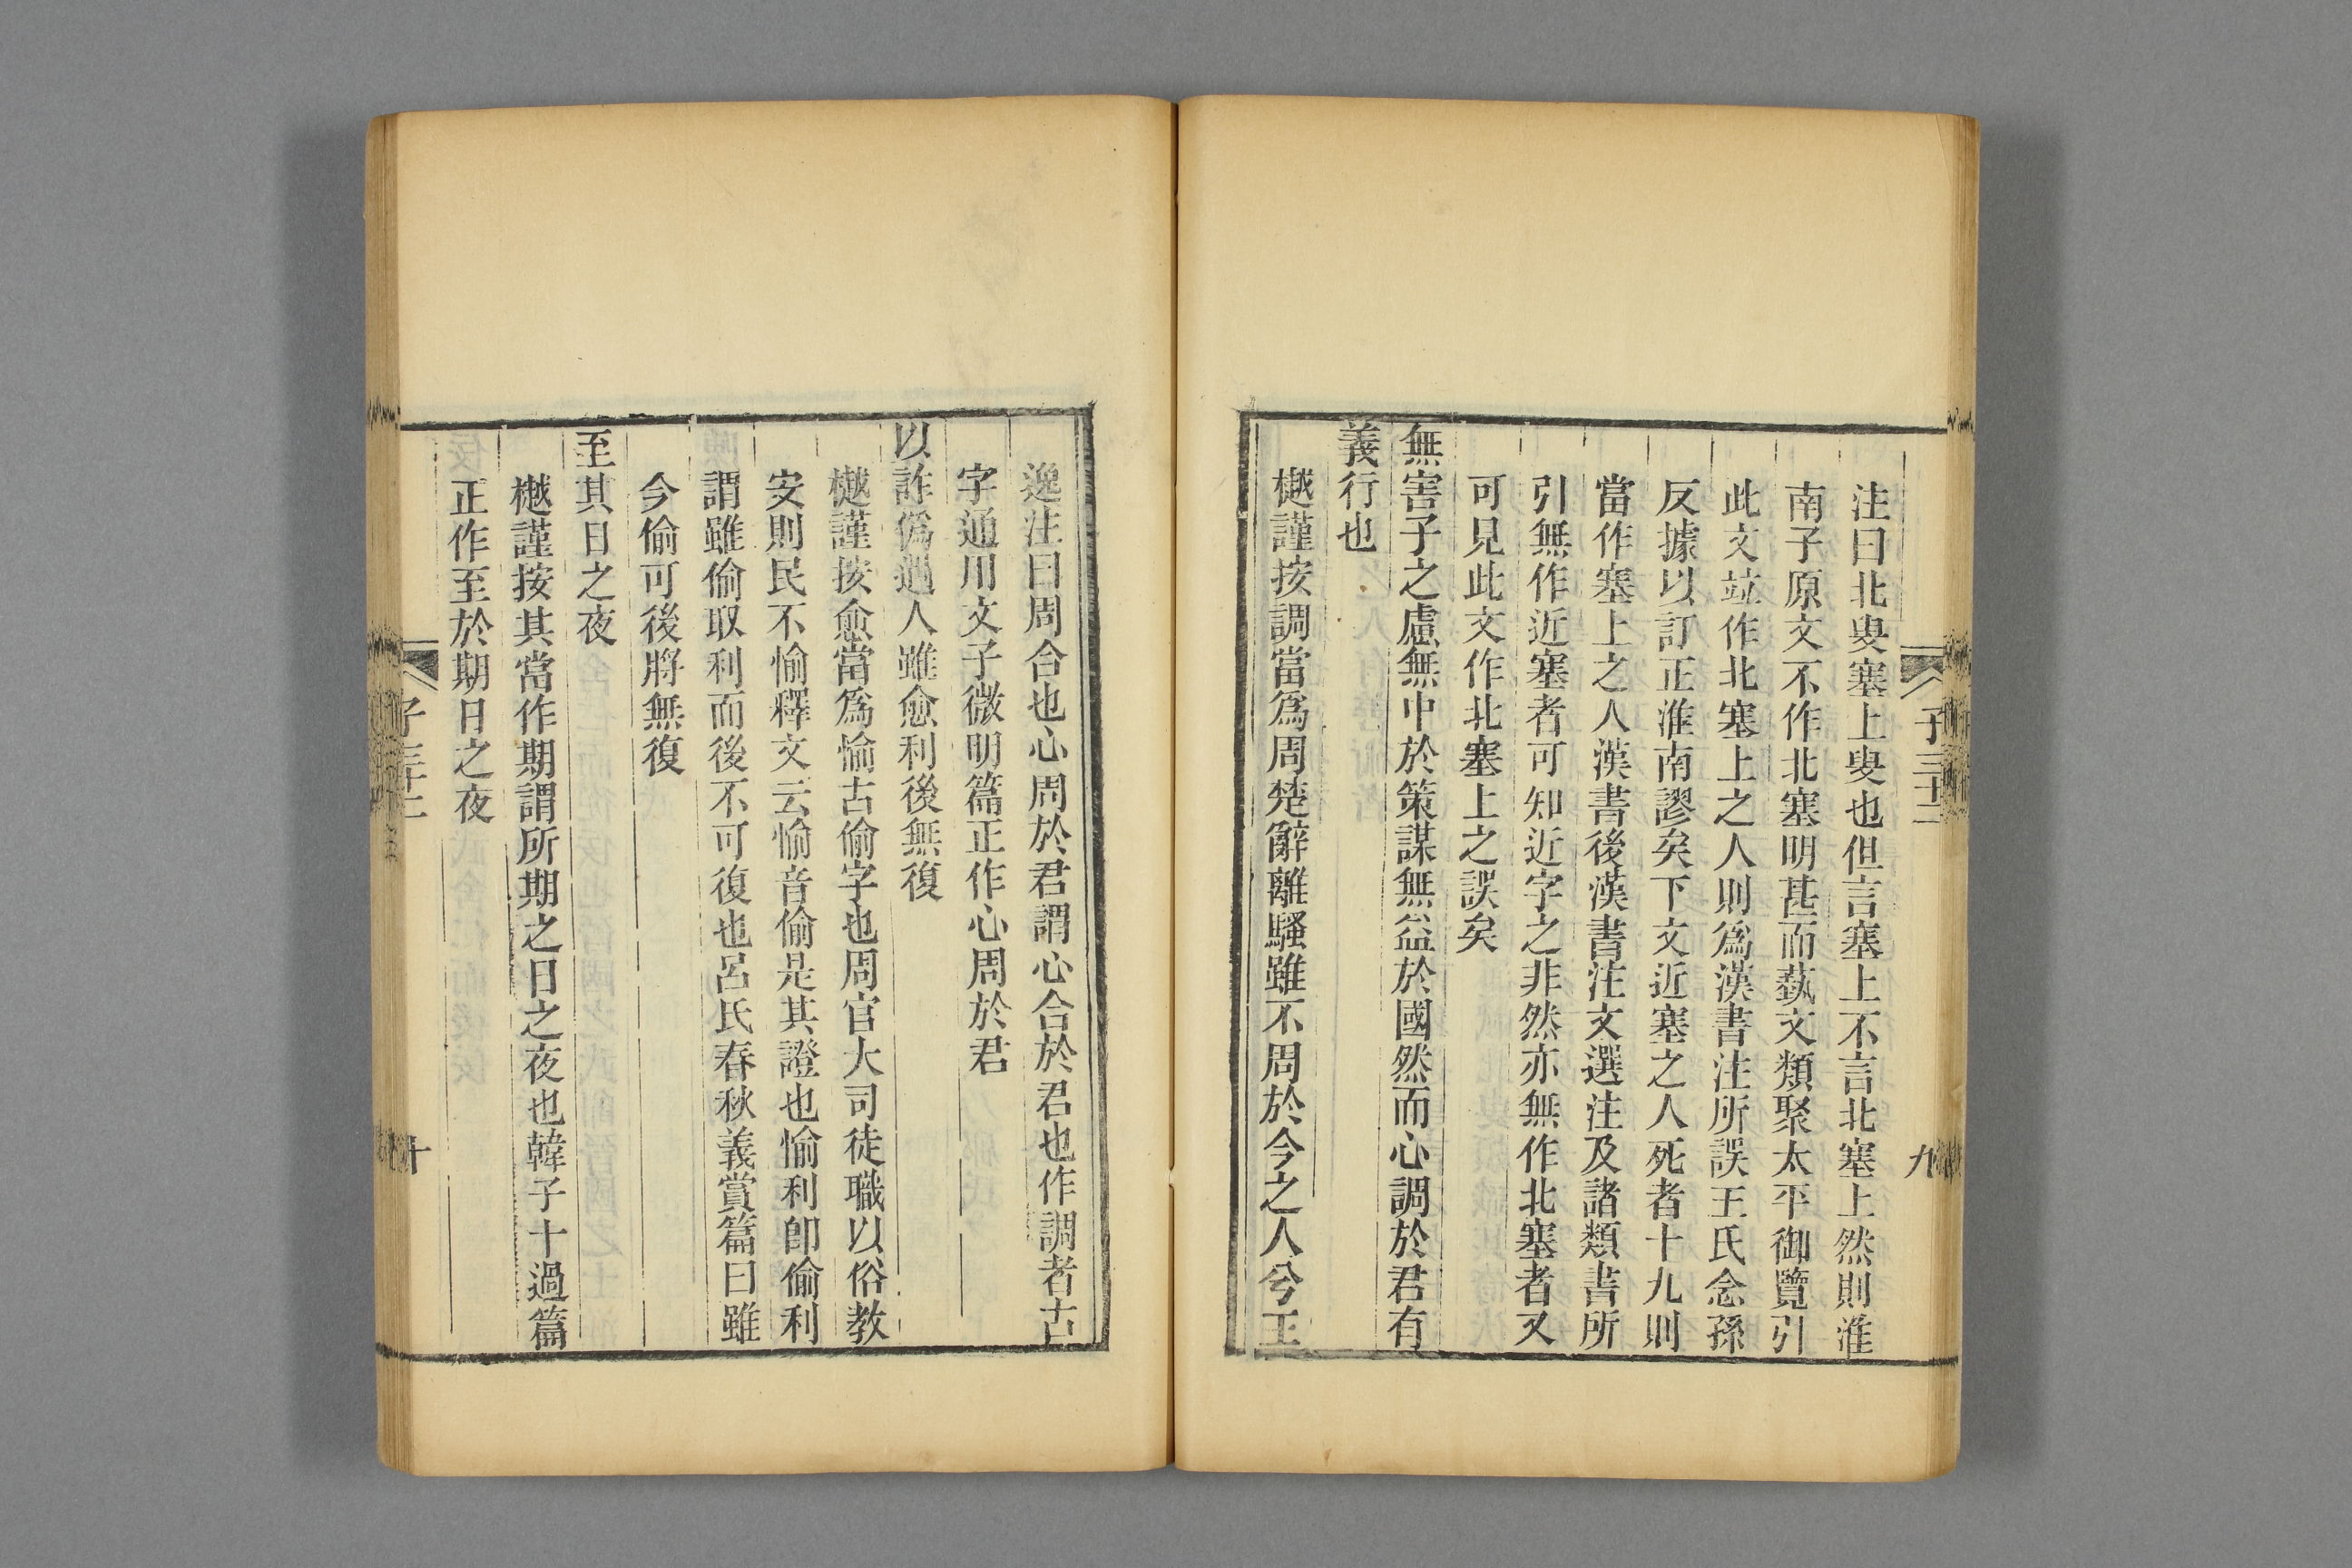 注曰北叟塞上叟也但言塞上不言北塞上然則淮
南子原文不作北塞明甚而蓺文類聚太平御覽引
此文竝作北塞上之人則爲漢書注所誤王氏念孫
反據以訂正淮南謬矣下文近塞之人死者十九則
當作塞上之人漢書後漢書注文選注及諸類書所
引無作近塞者可知近字之非然亦無作北塞者又
可見此文作北塞上之誤矣
無害子之慮無中於策謀無益於國然而心調於君有
義行也
樾謹按調當爲周楚辭離騷雖不周於今之人兮王
子三十二
九
逸注曰周合也心周於君謂心合於君也作調者古
字通用文子微明篇正作心周於君
以詐僞遇人雖愈利後無復
樾謹按愈當爲愉古偷字也周官大司徒職以俗教
安則民不愉釋文云愉音偷是其證也愉利卽偷利
謂雖偷取利而後不可復也呂氏春秋義賞篇曰雖
今偷可後將無復
至其日之夜
樾謹按其當作期謂所期之日之夜也韓子十過篇
正作至於期日之夜
子三十二
十